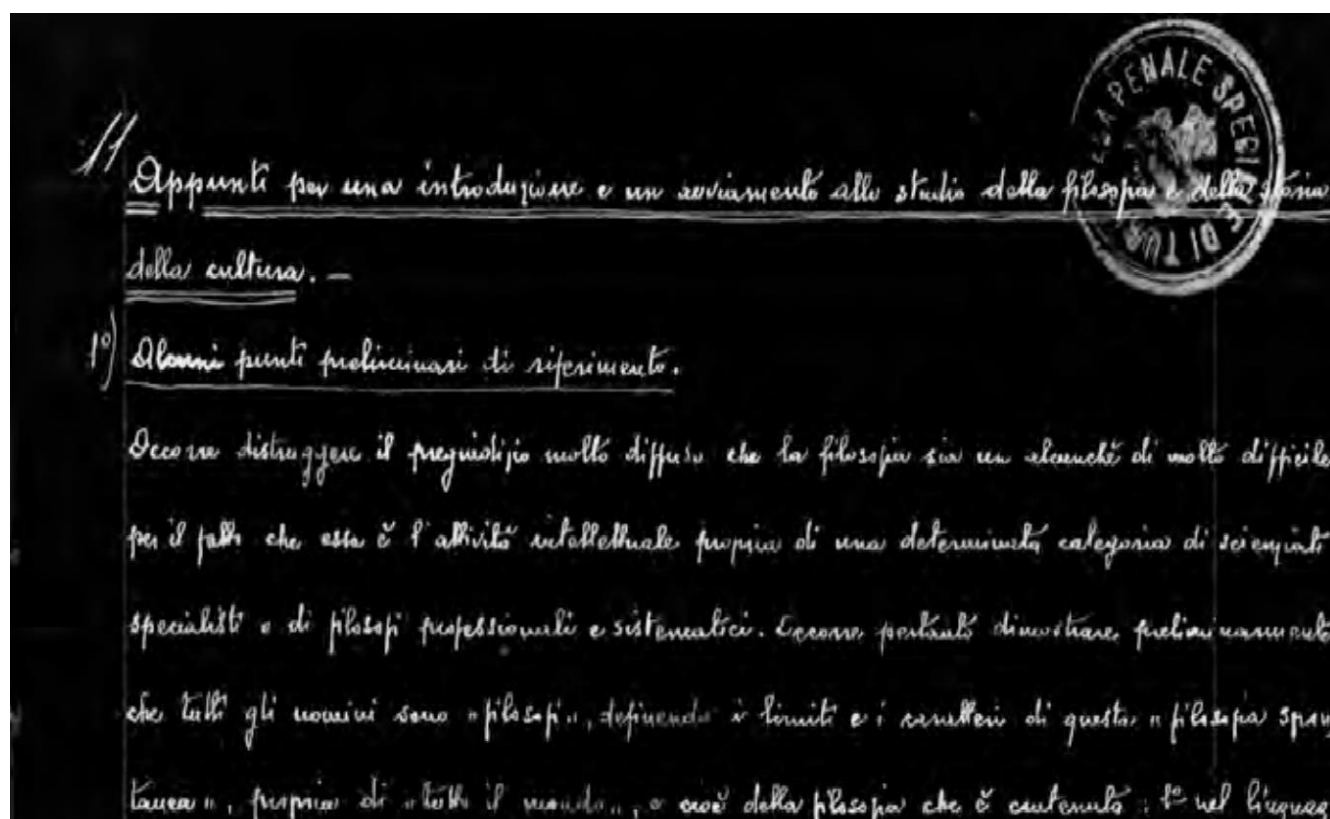 11
Appunti per una introduzione e un avviamento allo studio della filosofia e della storia
della cultura. —
1º) Alcuni punti preliminari di riferimento.
Occorre distruggere il pregiudizio molto diffuso che la filosofia sia un alcunché di molto difficile
per il fatto che essa è l'attività intellettuale propria di una determinata categoria di scienziati
specialisti o di filosofi professionali e sistematici. Occorre pertanto dimostrare preliminarmente
che tutti gli uomini sono "filosofi", definendo i limiti e i caratteri di questa "filosofia spon
tanea", propria di "tutto il mondo", e cioè della filosofia che è contenuta: 1º nel linguag
PENALE SPECIALE DI TU